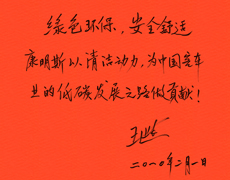 绿色环保,安全舒适
康明斯以清洁动力,为中国客车
业的低碳发展之路做贡献!
二〇一〇年二月一日